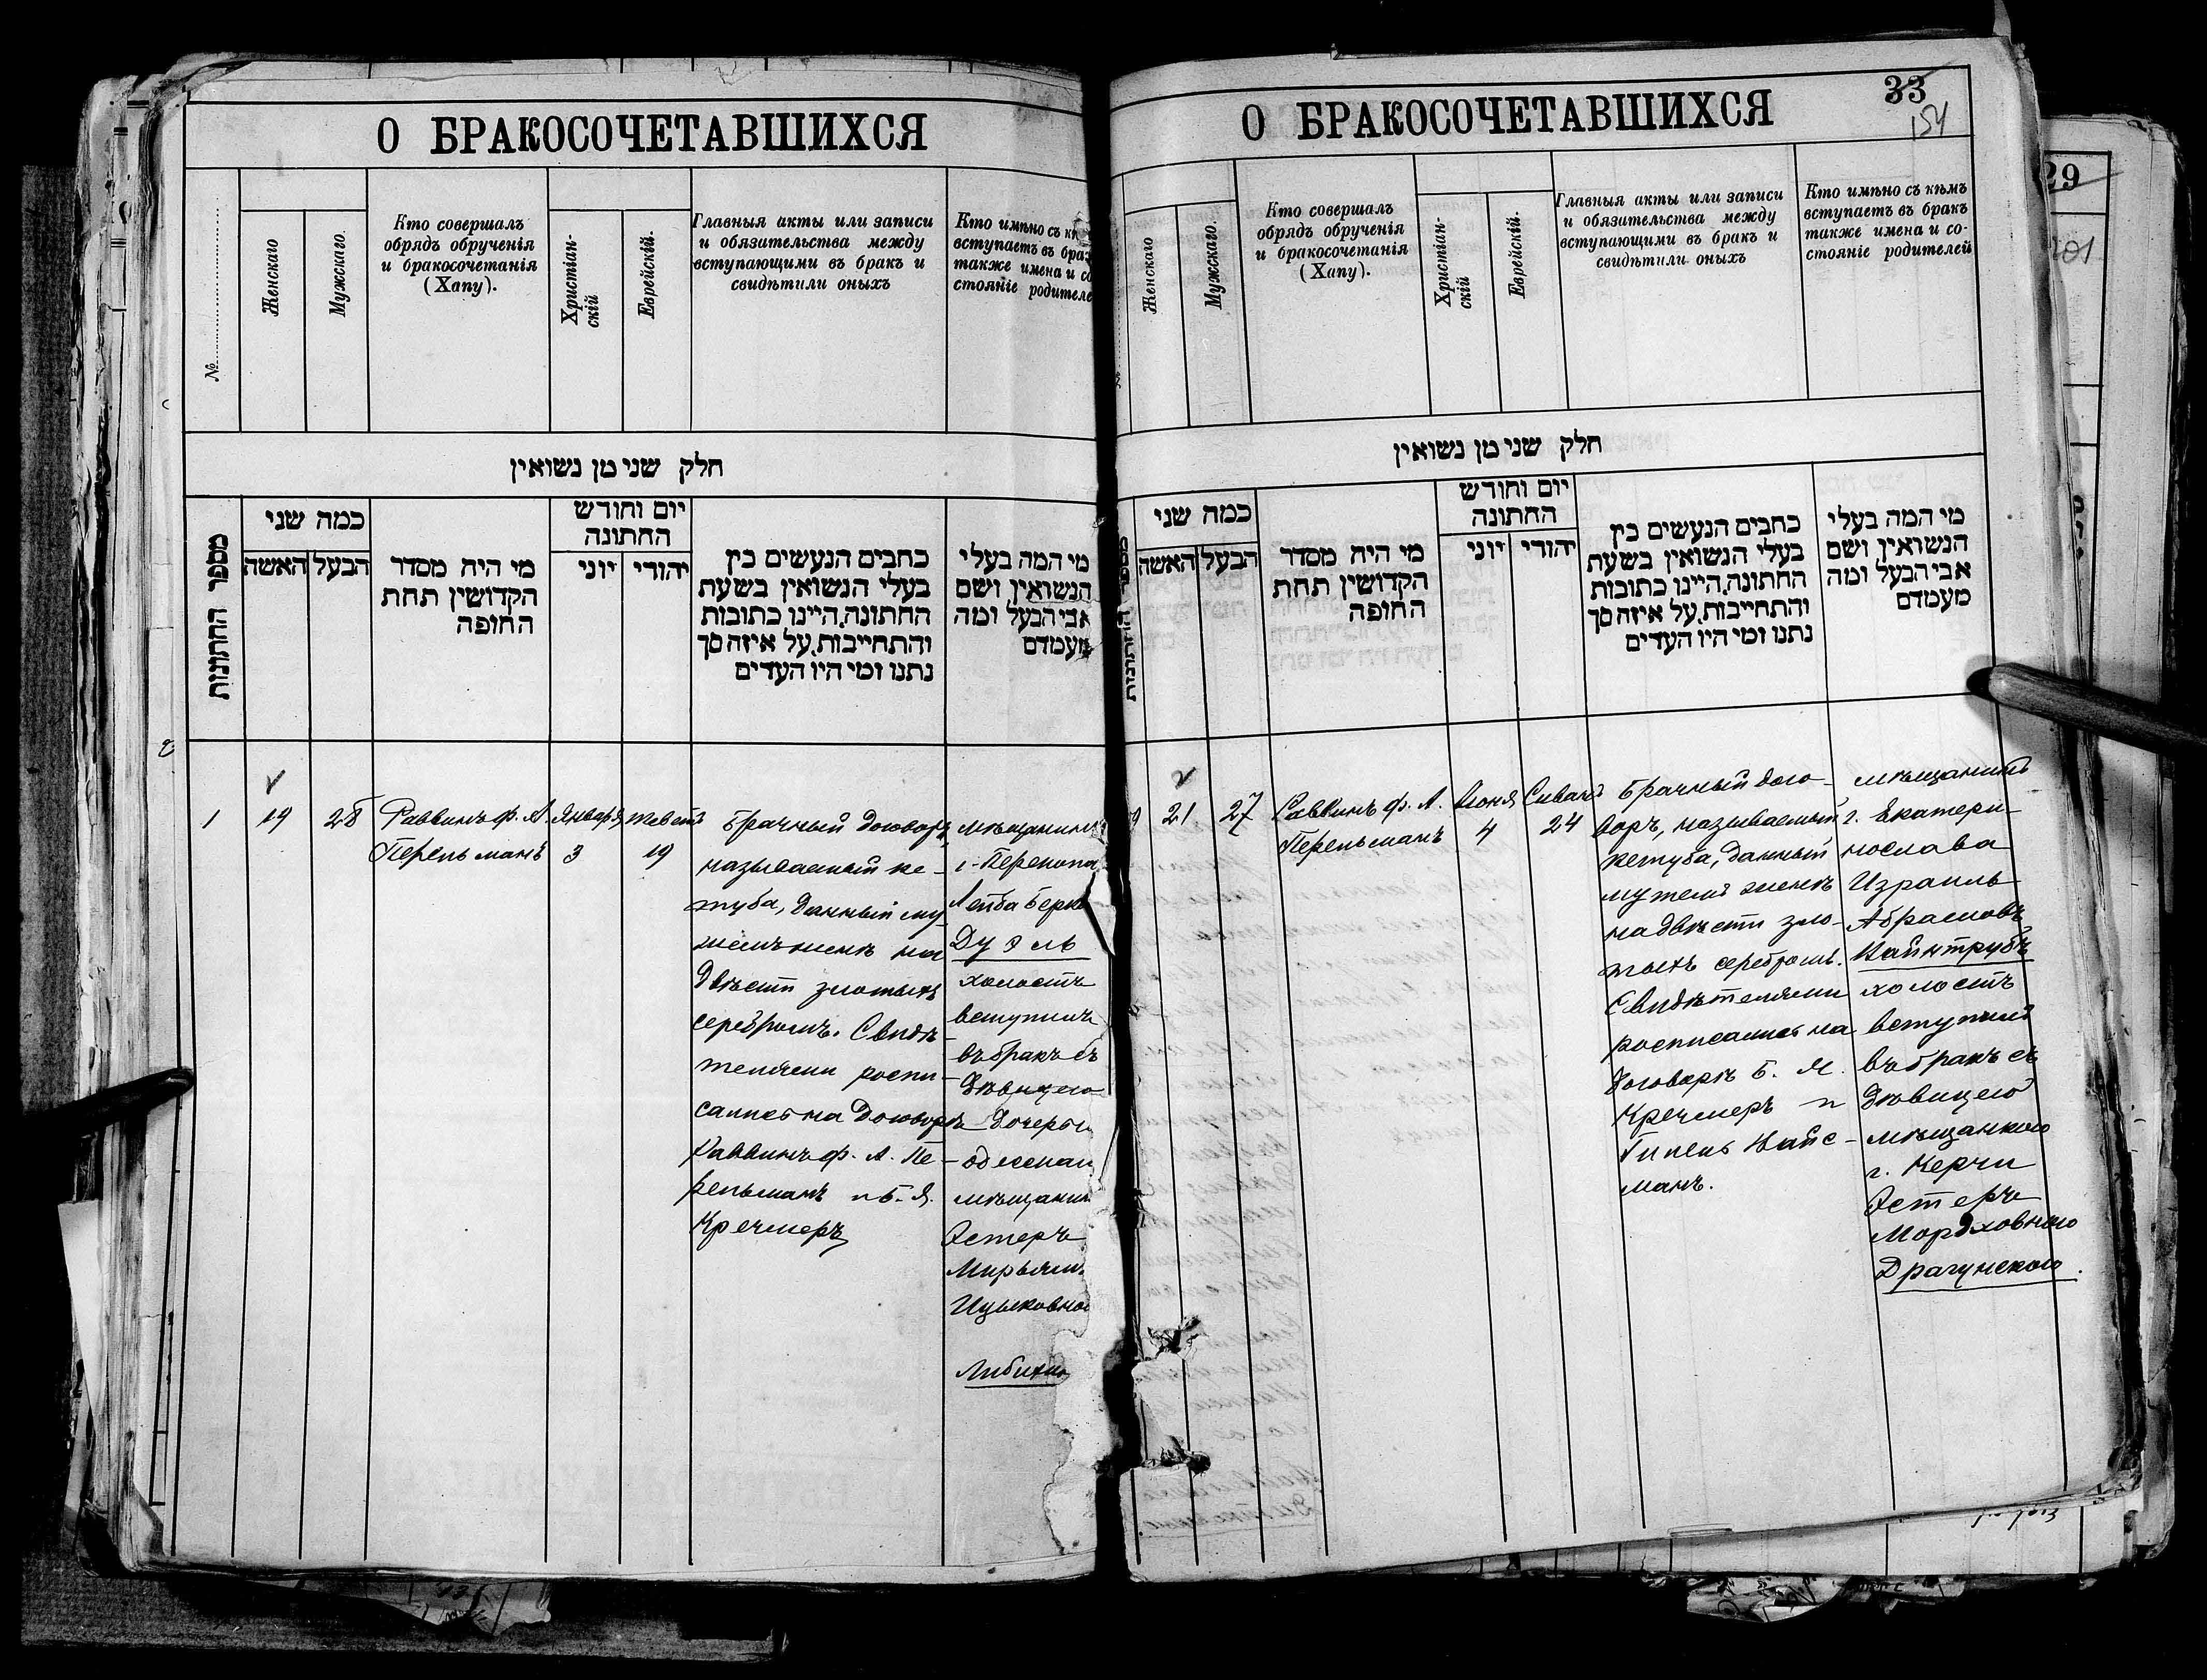 О БРАКОСОЧЕТАВШИХСЯ
№
Женскаго
Мужскаго.
Кто совершалъ
обрядъ обрученія
и бракосочетанія
(Хапу).
Христіан-
скій
Еврейскій.
Главныя акты или записи
и обязательства между
вступающими въ бракъ и
свидѣтили оныхъ
Кто имѣно съ
вступаетъ въ
также имена и
стояніе
חלק שני מן נשואין
מספר החתונות
כמה שני
האשה
הבעל
מי היה מסדר
הקדושין תחת
החופה
יום וחודש
החתונה
יוני
יהודי
כתבים הנעשים בין
בעלי הנשואין בשעת
החתונה.היינו כתובות
והתחייבות.על איזה סך
נתנו ומי היו העדים
מי המה בעלי
הנשואין ושם
אבי הבעל ומה
מעמדם
1
19
28
Раввинъ ф. А.
Перельманъ
Января
3
Теветъ
19
Брачный договоръ,
называемый ке-
туба, данный му
жемъ женѣ на
двѣсти злотыхъ
серебромъ. Свидѣ-
телями роспи-
сались на договорѣ
Раввинъ ф. А. Пе-
рельманъ и Б. Я.
Кречмеръ
мѣщанинъ
г. Перекопа
Лейба
Дуэль
холостъ
вступилъ
въ бракъ съ
дѣвицею
дочерью
мѣщанин
Эстеръ
Ицыковно
О БРАКОСОЧЕТАВШИХСЯ
33
154
Женскаго
Мужскаго.
Кто совершалъ
обрядъ обрученія
и бракосочетанія
(Хапу).
Христіан-
скій
Еврейскій.
Главныя акты или записи
и обязательства между
вступающими въ бракъ и
свидѣтили оныхъ
Кто имѣно съ кѣмъ
вступаетъ въ бракъ
также имена и со-
стояніе родителей
חלק שני מן נשואין
כמה שני
האשה
הבעל
מי היה מסדר
הקדושין תחת
החופה
יום וחודש
החתונה
יוני
יהודי
כתבים הנעשים בין
בעלי הנשואין בשעת
החתונה.היינו כתובות
והתחייבות.על איזה סך
נתנו ומי היו העדים
מי המה בעלי
הנשואין ושם
אבי הבעל ומה
מעמדם
21
27
Раввинъ ф. А.
Перельманъ
Іюня
4
Сиванъ
24
Брачный дого-
воръ, называемый
кетуба, данный
мужемъ женѣ
на двѣсти зло-
тыхъ серебромъ.
Свидѣтелями
росписались на
договорѣ Б. Я.
Кречмеръ и
Гипель Вайс-
манъ.
мѣщанинъ
г. Екатери-
нослава
Израиль
Абрамовъ
Вайнтрубъ
холостъ
вступилъ
въ бракъ съ
дѣвицею
мѣщанкою
г. Керчи
Эстеръ
Мордховною
Драгунскою.
29
201